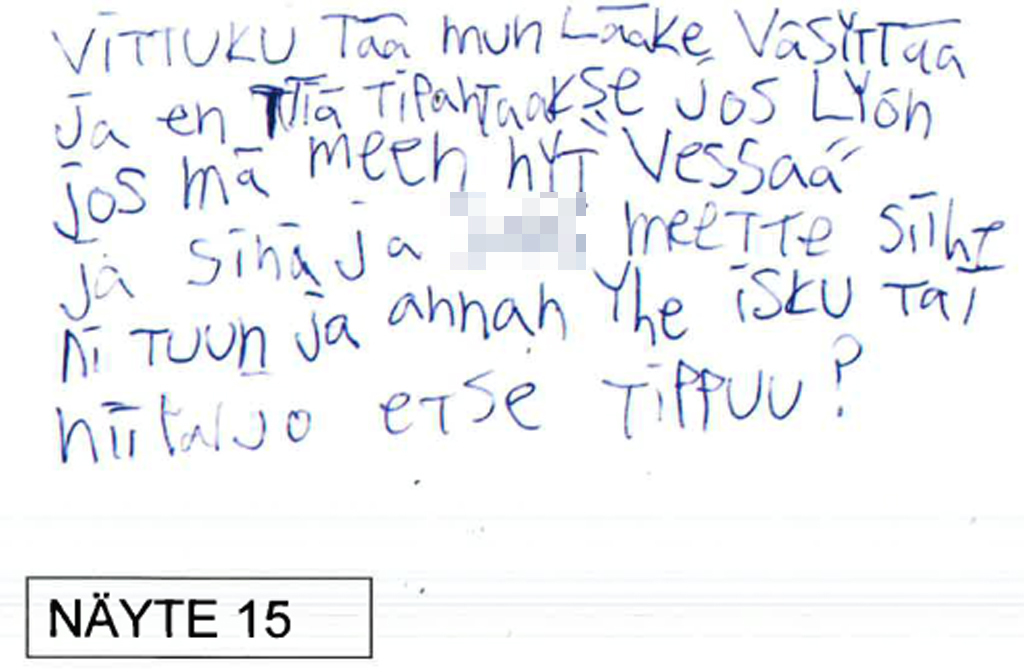 VITTUKU Tää mun Lääke VäsYTTää
ja en TTiä Tipahtaakse jos LYön
jos mä meen nYT Vessaa
ja sinä ja meeTTe siihe
ni TUUn ja annan Yhe isku Tai
niitaljo etse TippUU?
NÄYTE 15